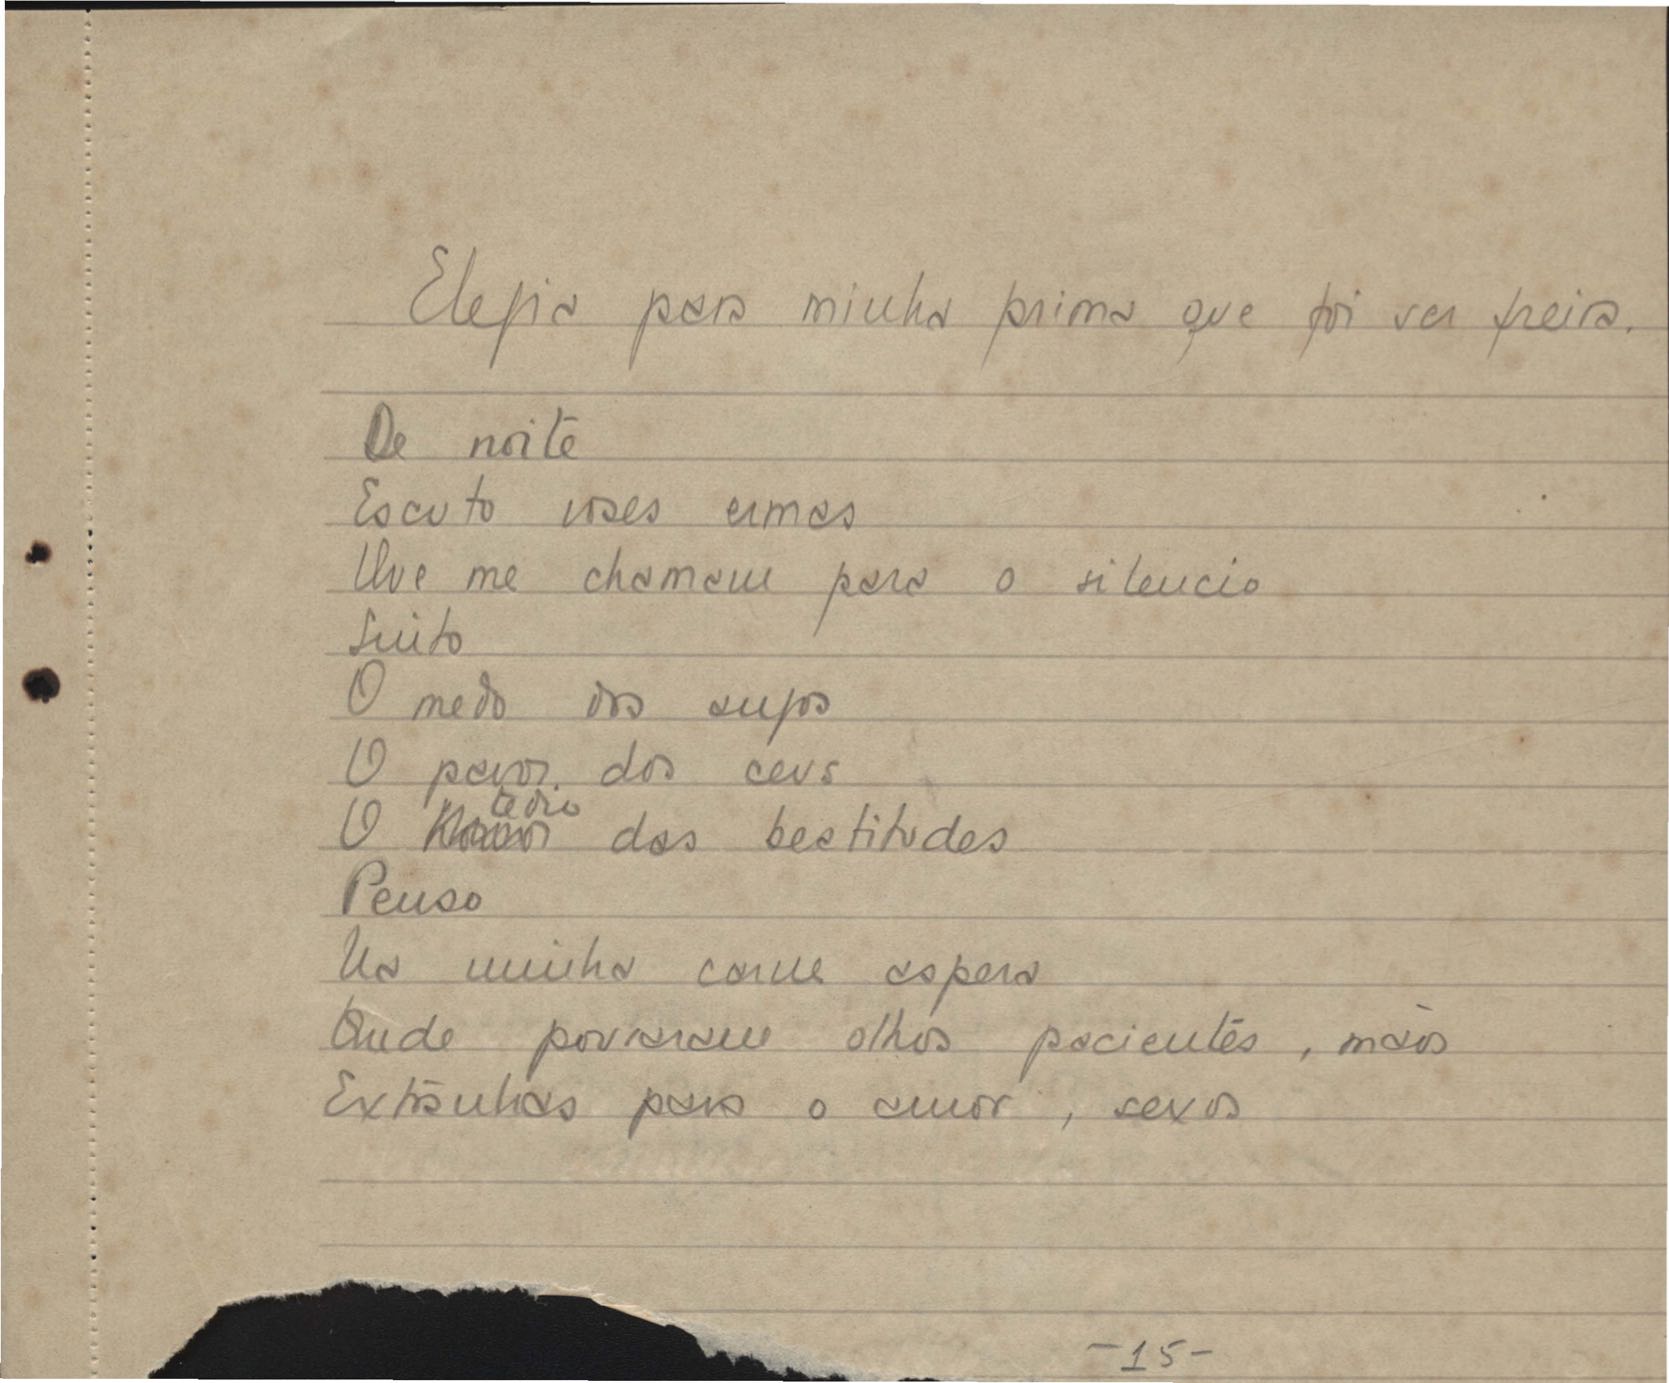 Elegia para minha prima que foi ser freira.
De noite
Escuto vozes ermas
Que me chamam para o silencio
Sinto
O medo dos anjos
O pavor dos ceus
O tedio das beatitudes
Penso
Na minha carne aspera
Onde pousaram olhos pacientes, mãos
Extranhas para o amor, sexos
-15-